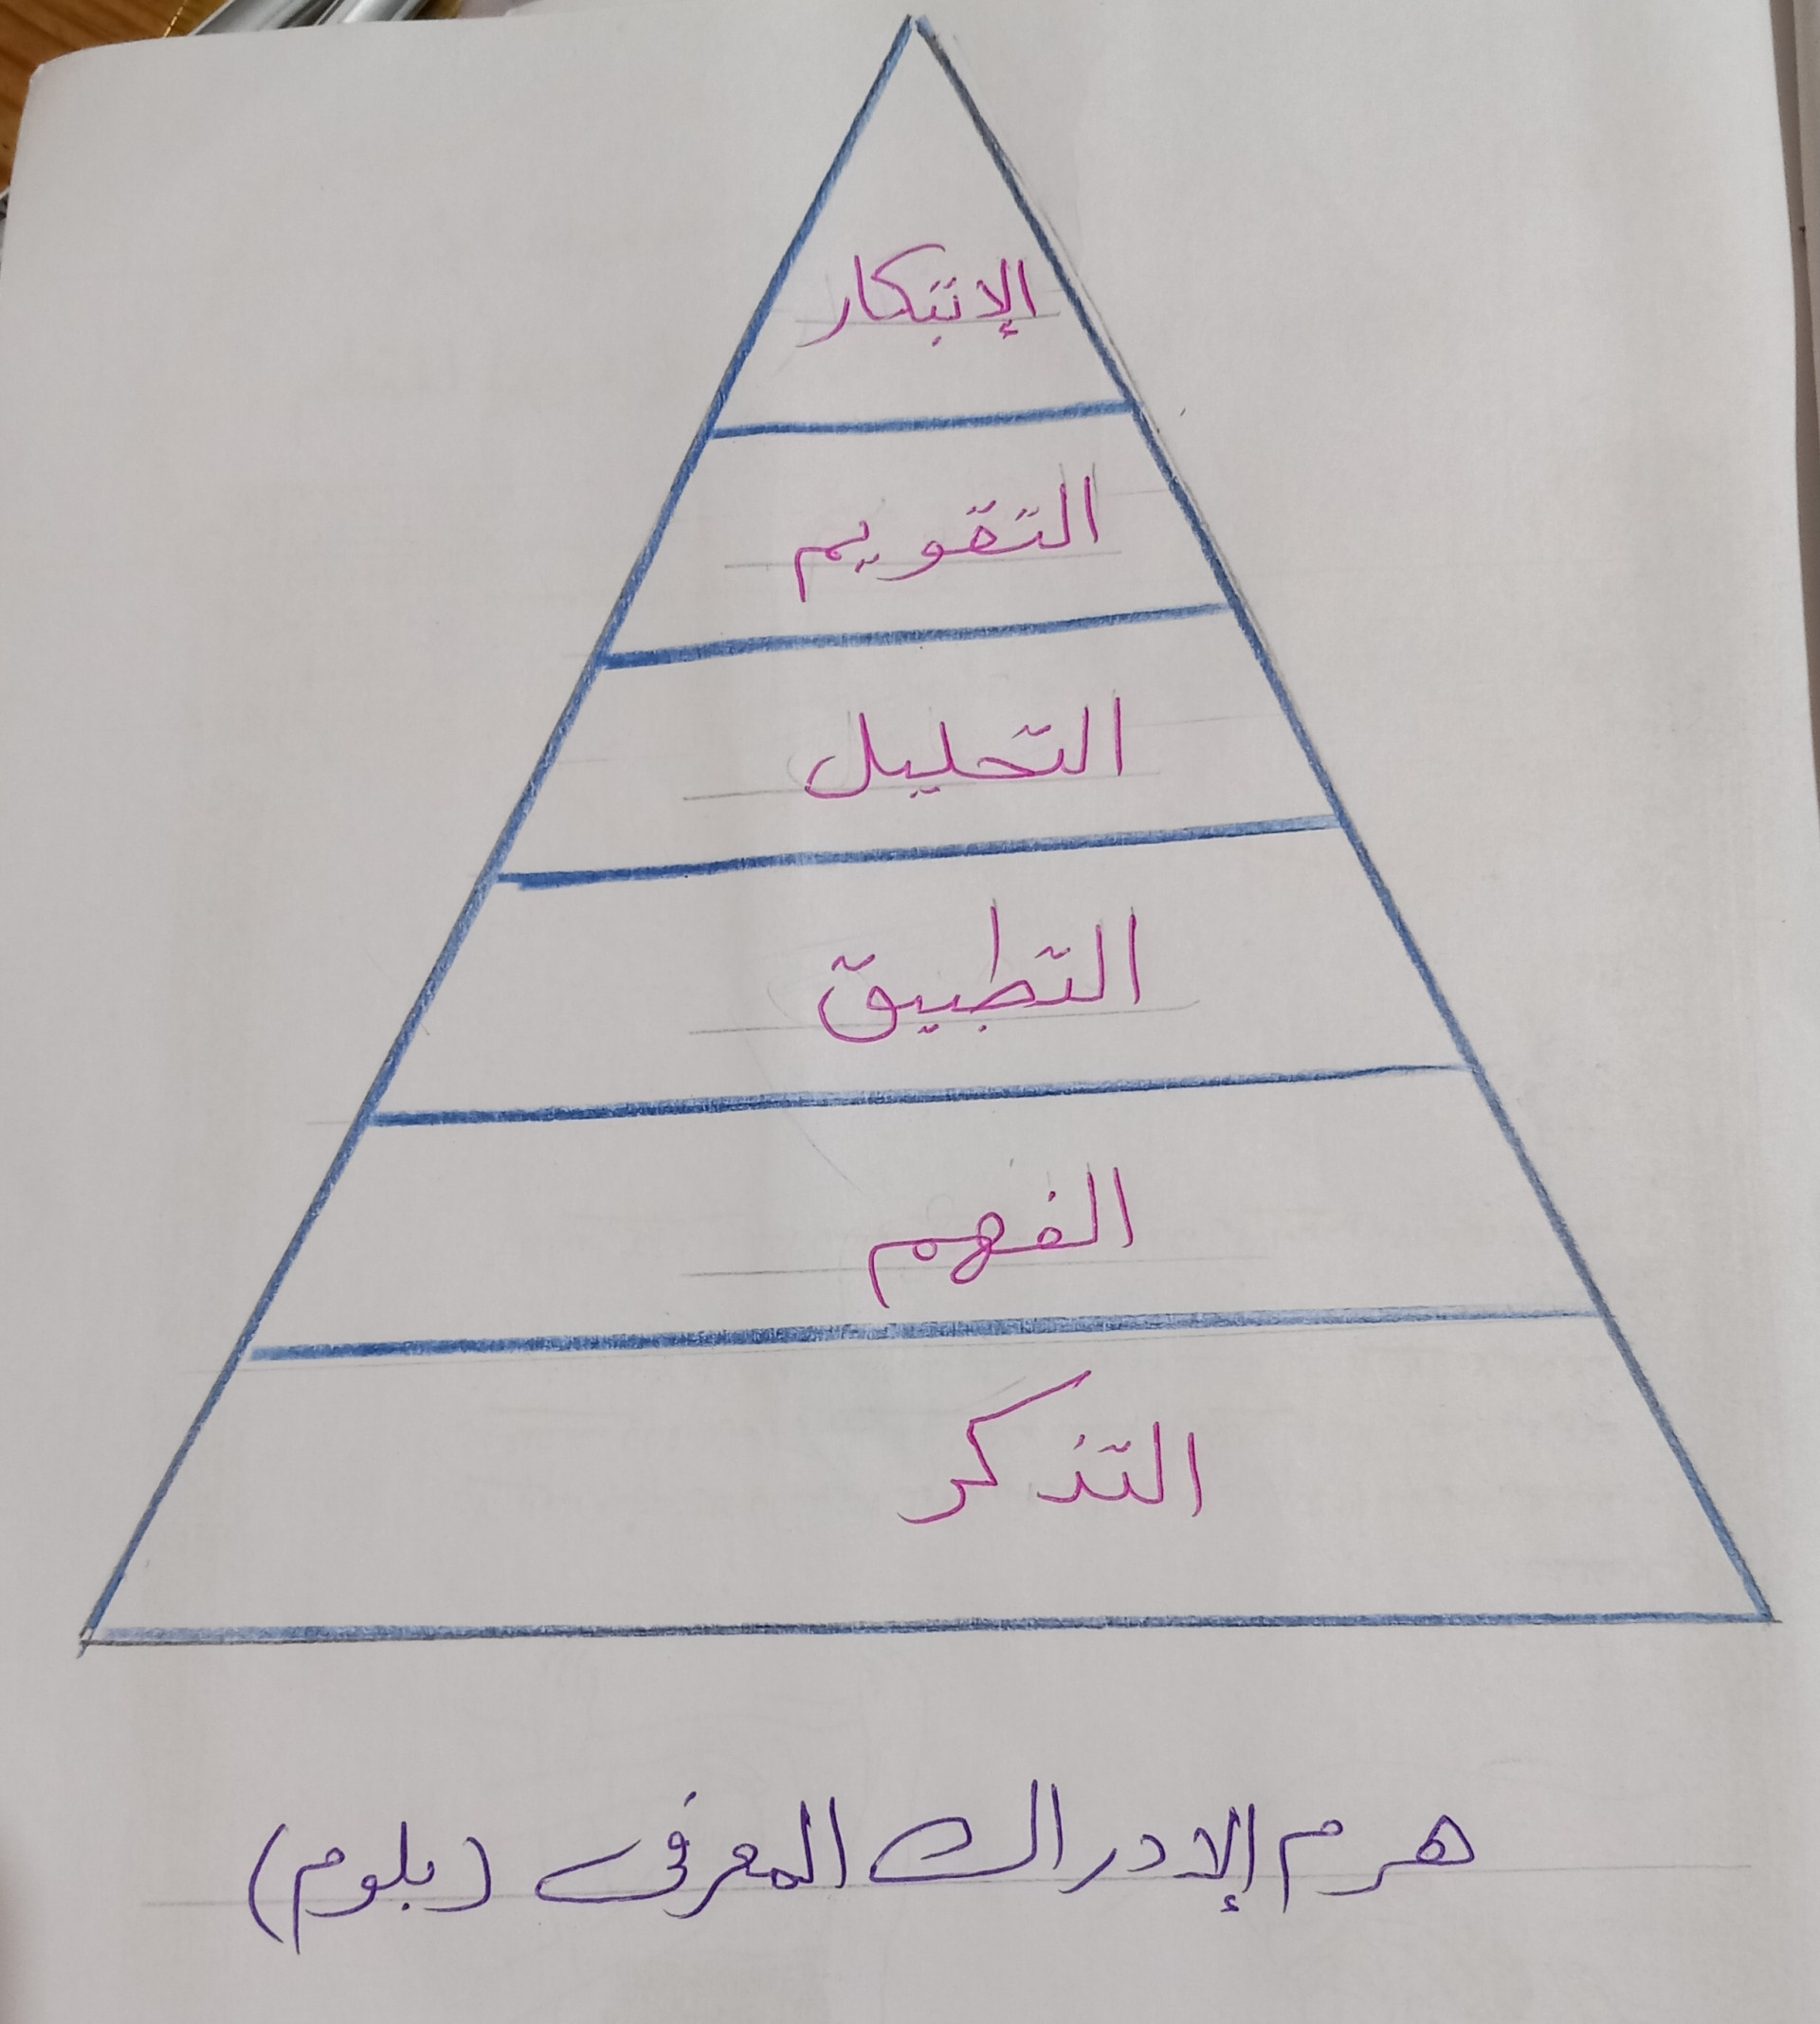 الإبتكار
التقويم
التحليل
التطبيق
الفهم
التذكر
هرم الإدراك المعرفى (بلوم)